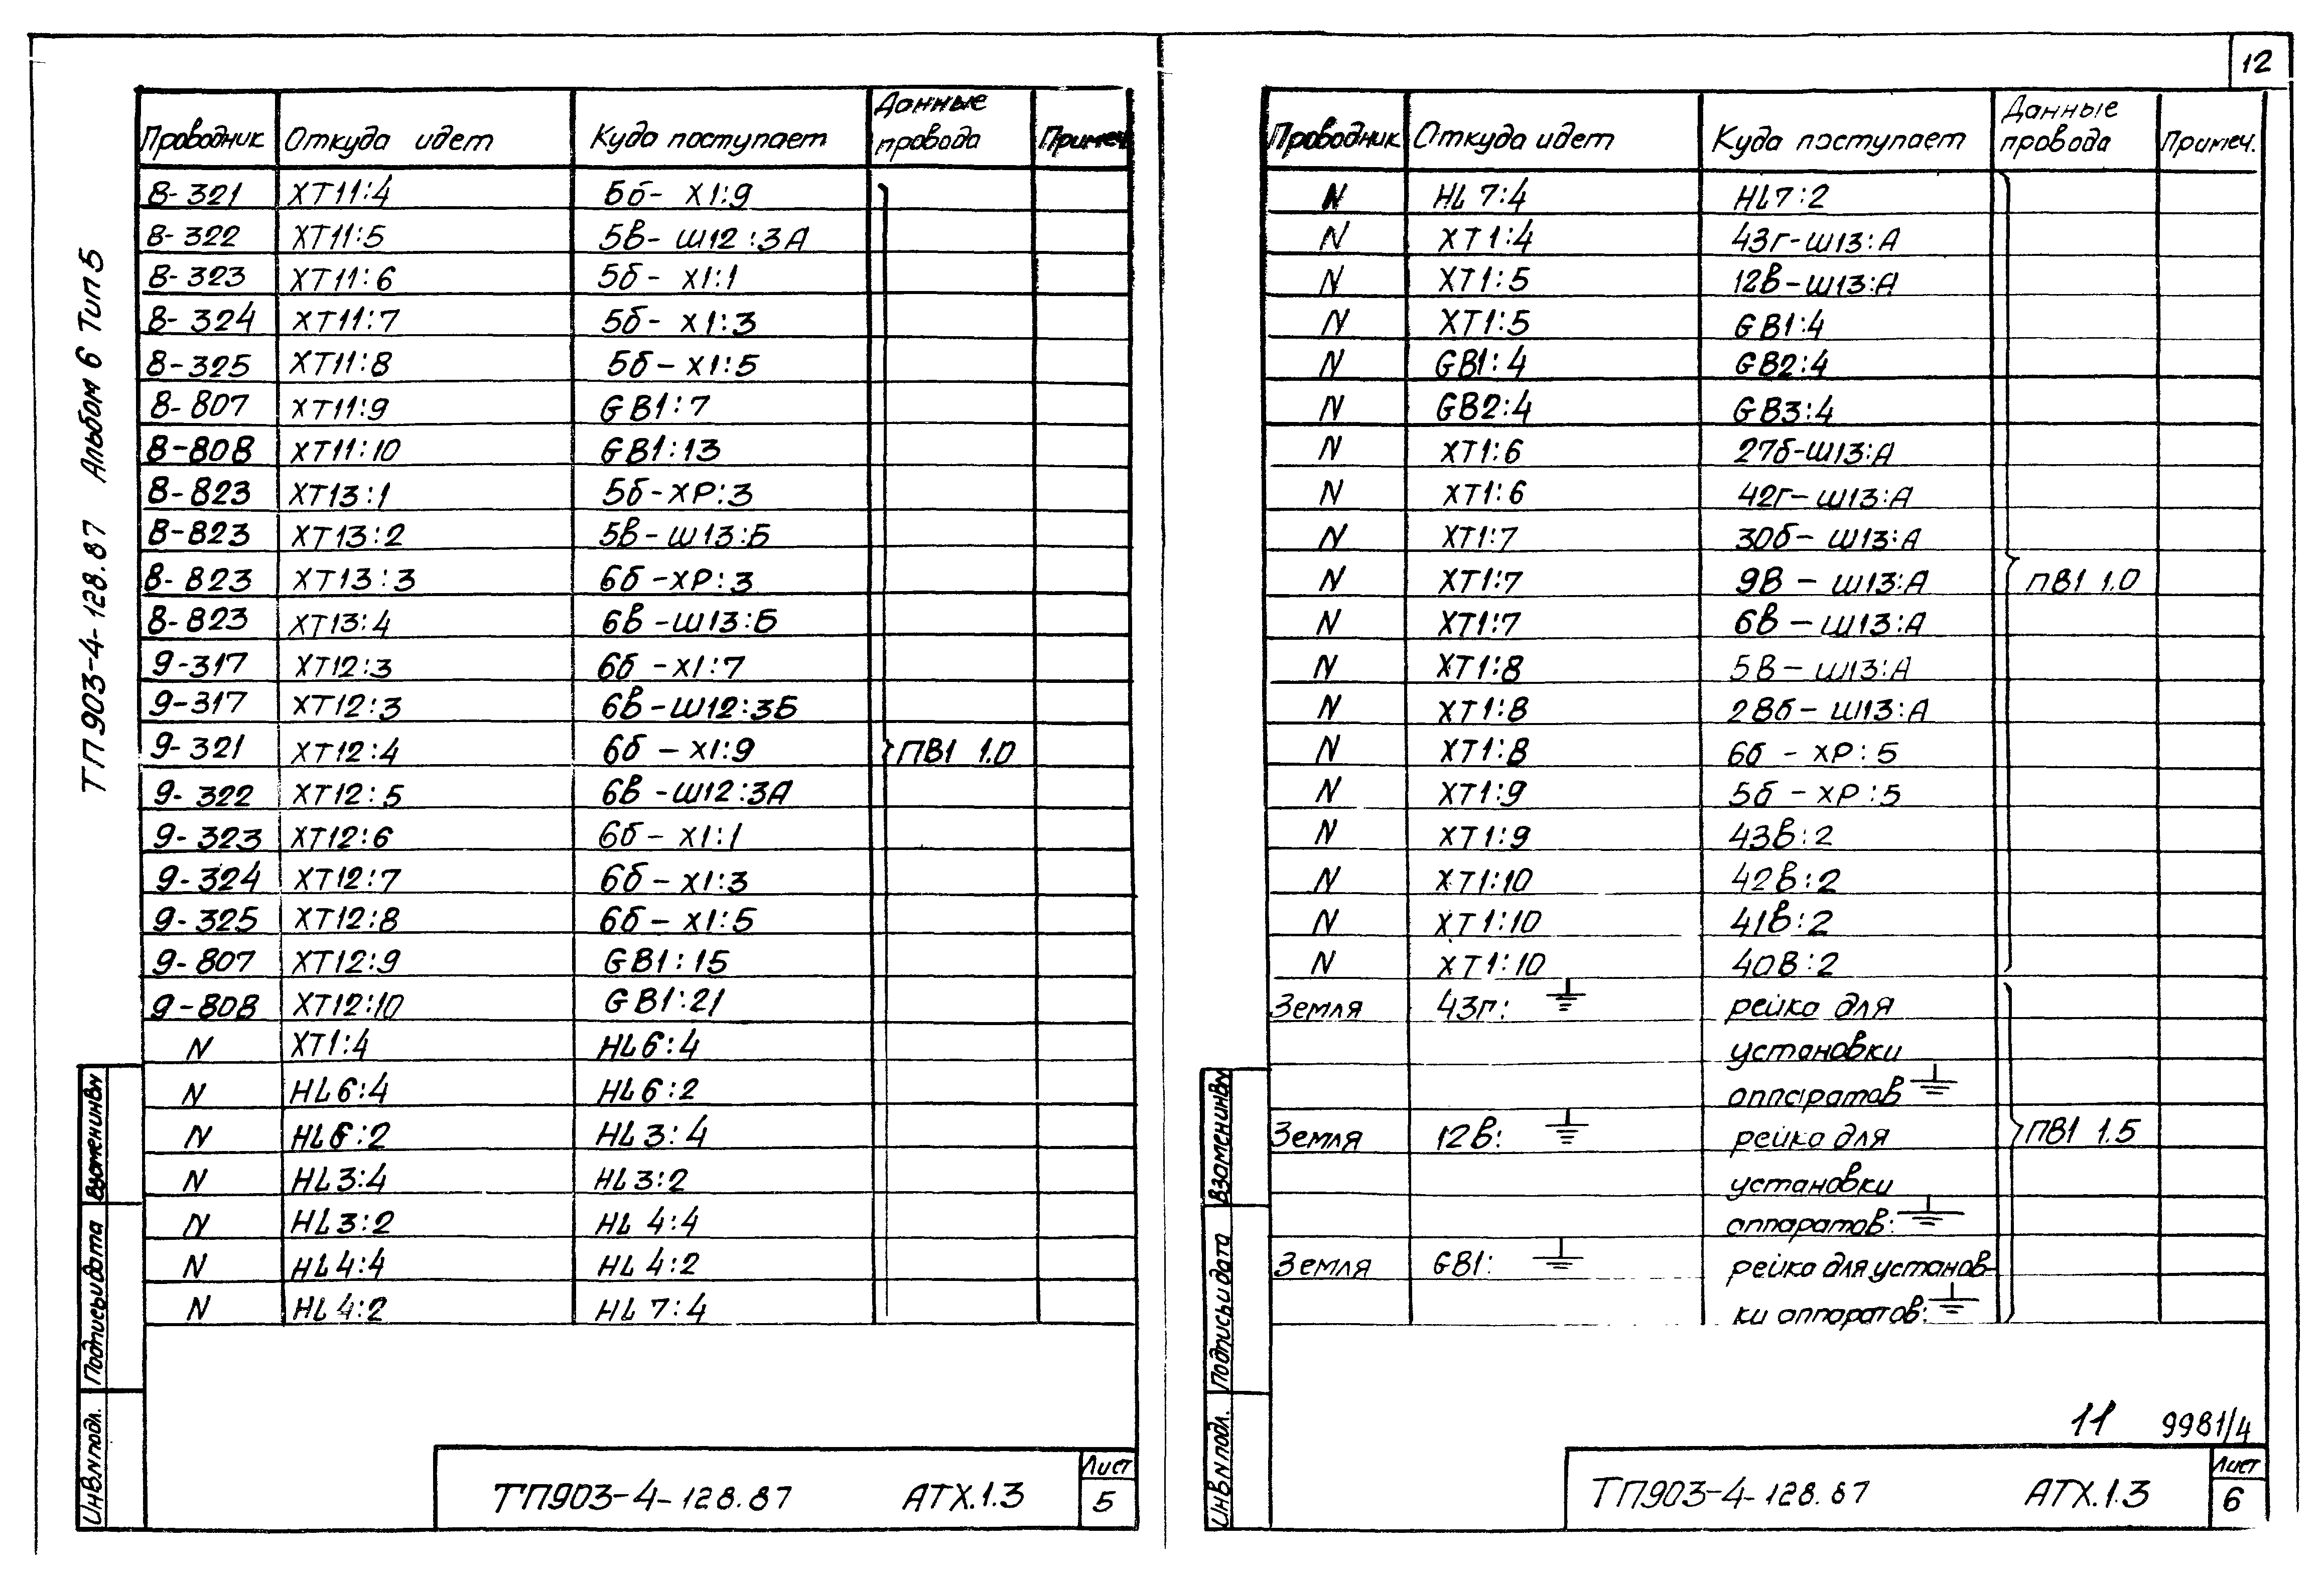 12
ТП903-4-128.87 Альбом 6 Тип 5
Проводник Откуда идет Куда поступает Данные провода Примеч.
8-321 XT11:4 5б- X1:9
8-322 XT11:5 5В-Ш12:3А
8-323 XT11:6 5б- X1:1
8-324 XT11:7 5б- X1:3
8-325 XT11:8 5б- X1:5
8-807 XT11:9 GB1:7
8-808 XT11:10 GB1:13
8-823 XT13:1 5б-XP:3
8-823 XT13:2 5В-Ш13:Б
8-823 XT13:3 6б-XP:3
8-823 XT13:4 6В-Ш13:Б
9-317 XT12:3 6б-X1:7
9-317 XT12:3 6В-Ш12:3Б
9-321 XT12:4 6б-X1:9 ПВ1 1.0
9-322 XT12:5 6В-Ш12:3А
9-323 XT12:6 6б- X1:1
9-324 XT12:7 6б- X1:3
9-325 XT12:8 6б- X1:5
9-807 XT12:9 GB1:15
9-808 XT12:10 GB1:21
N XT1:4 HL6:4
N HL6:4 HL6:2
N HL6:2 HL3:4
N HL3:4 HL3:2
N HL3:2 HL4:4
N HL4:4 HL4:2
N HL4:2 HL7:4
Взамен инв N
Подпись и дата
Инв N подл.
ТП903-4-128.87 АТХ.1.3 Лист 5
Проводник Откуда идет Куда поступает Данные провода Примеч.
N HL7:4 HL7:2
N XT1:4 43г-Ш13:А
N XT1:5 12В-Ш13:А
N XT1:5 GB1:4
N GB1:4 GB2:4
N GB2:4 GB3:4
N XT1:6 27б-Ш13:А
N XT1:6 42г-Ш13:А
N XT1:7 30б-Ш13:А
N XT1:7 9В-Ш13:А ПВ1 1.0
N XT1:7 6В-Ш13:А
N XT1:8 5В-Ш13:А
N XT1:8 28б-Ш13:А
N XT1:8 6б-XP:5
N XT1:9 5б-XP:5
N XT1:9 43В:2
N XT1:10 42В:2
N XT1:10 41В:2
N XT1:10 40В:2
Земля 43г: рейка для
установки
аппаратов
Земля 12В: рейка для ПВ1 1.5
установки
аппаратов:
Земля GB1: рейка для установ-
ки аппаратов:
Взамен инв N
Подпись и дата
Инв N подл.
11 9981/4
ТП903-4-128.87 АТХ.1.3 Лист 6